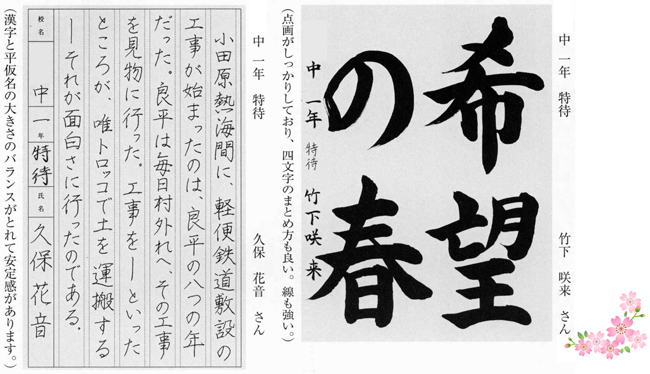 中一年 特待 竹下 咲来 さん
希望
の春
中一年 特待 竹下咲来
(点画がしっかりしており、四文字のまとめ方も良い。線も強い。)
中一年 特待 久保 花音 さん
小田原熱海間に、軽便鉄道敷設の
工事が始まったのは、良平の八つの年
だった。良平は毎日村外れへ、その工事
を見物に行った。工事を―といった
ところが、唯トロッコで土を運搬する
―それが面白さに行ったのである。
校名 中一年 特待 氏名 久保花音
(漢字と平仮名の大きさのバランスがとれて安定感があります。)